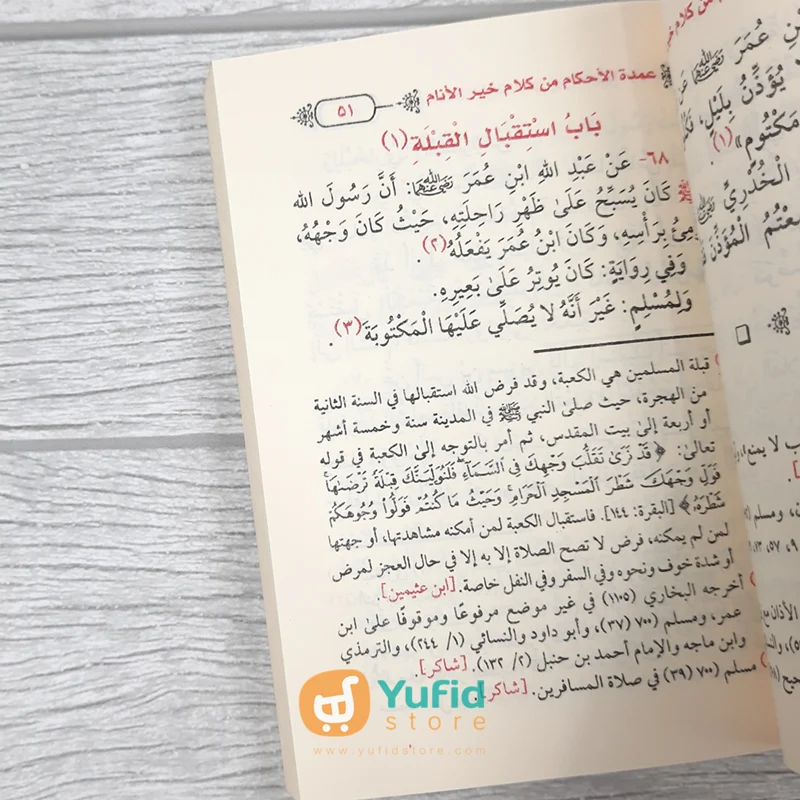 عمدة الأحكام من كلام خير الأنام
٥١
بَابُ اسْتِقْبَالِ الْقِبْلَةِ (١)
٦٨- عَنْ عَبْدِ اللهِ ابْنِ عُمَرَ رضي الله عنهما: أَنَّ رَسُولَ الله
ﷺ كَانَ يُسَبِّحُ عَلَىٰ ظَهْرِ رَاحِلَتِهِ، حَيْثُ كَانَ وَجْهُهُ،
بِرَأْسِهِ، وَكَانَ ابْنُ عُمَرَ يَفْعَلُهُ (٢).
وَفِي رِوَايَةٍ: كَانَ يُوتِرُ عَلَىٰ بَعِيرِهِ.
وَلِمُسْلِمٍ: غَيْرَ أَنَّهُ لا يُصَلِّي عَلَيْهَا الْمَكْتُوبَةَ (٣).
قبلة المسلمين هي الكعبة، وقد فرض الله استقبالها في السنة الثانية
من الهجرة، حيث صلىٰ النبي ﷺ في المدينة سنة وخمسة أشهر
أو أربعة إلىٰ بيت المقدس، ثم أمر بالتوجه إلىٰ الكعبة في قوله
تعالىٰ: ﴿قَدْ نَرَىٰ تَقَلُّبَ وَجْهِكَ فِي السَّمَاءِ فَلَنُوَلِّيَنَّكَ قِبْلَةً تَرْضَاهَا
فَوَلِّ وَجْهَكَ شَطْرَ الْمَسْجِدِ الْحَرَامِ وَحَيْثُ مَا كُنتُمْ فَوَلُّوا وُجُوهَكُمْ
شَطْرَهُ﴾ [البقرة: ١٤٤]. فاستقبال الكعبة لمن أمكنه مشاهدتها، أو جهتها
لمن لم يمكنه، فرض لا تصح الصلاة إلا به إلا في حال العجز لمرض
أو شدة خوف ونحوه وفي السفر وفي النفل خاصة. [ابن عثيمين].
أخرجه البخاري (١١٠٥) في غير موضع مرفوعًا وموقوفًا علىٰ ابن
عمر، ومسلم ٧٠٠ (٣٧)، وأبو داود والنسائي (١/ ٢٤٤)، والترمذي
وابن ماجه والإمام أحمد بن حنبل (٢/ ١٣٢). [شاكر].
مسلم ٧٠٠ (٣٩) في صلاة المسافرين. [شاكر].
عُمَرَ رضي الله عنهما
يُؤَذِّنُ بِلَيْلٍ،
مَكْتُومٍ» (١).
الْخُدْرِيِّ
الْمُؤَذِّنَ
لا يمنع
ومسلم
Yufid
store
www.yufidstore.com